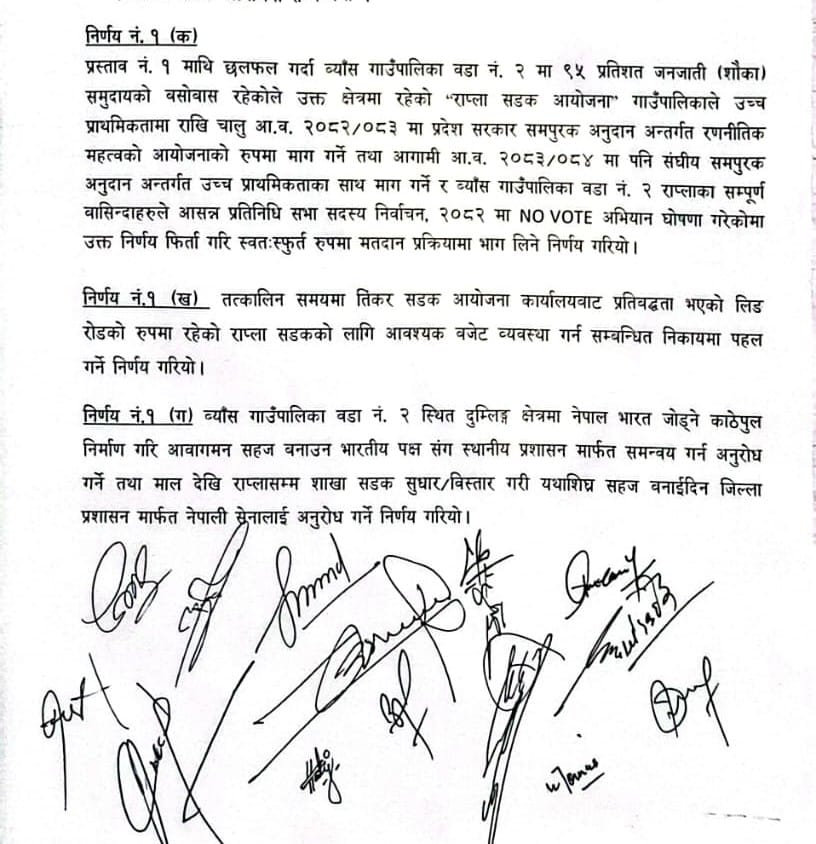 निर्णय नं. १ (क)
प्रस्ताव नं. १ माथि छलफल गर्दा ब्याँस गाउँपालिका वडा नं. २ मा ९५ प्रतिशत जनजाती (शौका)
समुदायको बसोबास रहेकोले उक्त क्षेत्रमा रहेको "राप्ला सडक आयोजना" गाउँपालिकाले उच्च
प्राथमिकतामा राखि चालु आ.व. २०८२/०८३ मा प्रदेश सरकार समपुरक अनुदान अन्तर्गत रणनीतिक
महत्वको आयोजनाको रुपमा माग गर्ने तथा आगामी आ.व. २०८३/०८४ मा पनि संघीय समपुरक
अनुदान अन्तर्गत उच्च प्राथमिकताका साथ माग गर्ने र ब्याँस गाउँपालिका वडा नं. २ राप्लाका सम्पूर्ण
वासिन्दाहरुले आसन्न प्रतिनिधि सभा सदस्य निर्वाचन, २०८२ मा NO VOTE अभियान घोषणा गरेकोमा
उक्त निर्णय फिर्ता गरि स्वतःस्फुर्त रुपमा मतदान प्रक्रियामा भाग लिने निर्णय गरियो।
निर्णय नं.१ (ख) तत्कालिन समयमा तिंकर सडक आयोजना कार्यालयवाट प्रतिवद्धता भएको लिङ
रोडको रुपमा रहेको राप्ला सडकको लागि आवश्यक वजेट व्यवस्था गर्न सम्बन्धित निकायमा पहल
गर्ने निर्णय गरियो।
निर्णय नं.१ (ग) ब्याँस गाउँपालिका वडा नं. २ स्थित दुम्लिङ्ग क्षेत्रमा नेपाल भारत जोड्ने काठेपुल
निर्माण गरि आवागमन सहज बनाउन भारतीय पक्ष संग स्थानीय प्रशासन मार्फत समन्वय गर्न अनुरोध
गर्ने तथा माल देखि राप्लासम्म शाखा सडक सुधार/विस्तार गरी यथाशिघ्र सहज बनाईदिन जिल्ला
प्रशासन मार्फत नेपाली सेनालाई अनुरोध गर्ने निर्णय गरियो।